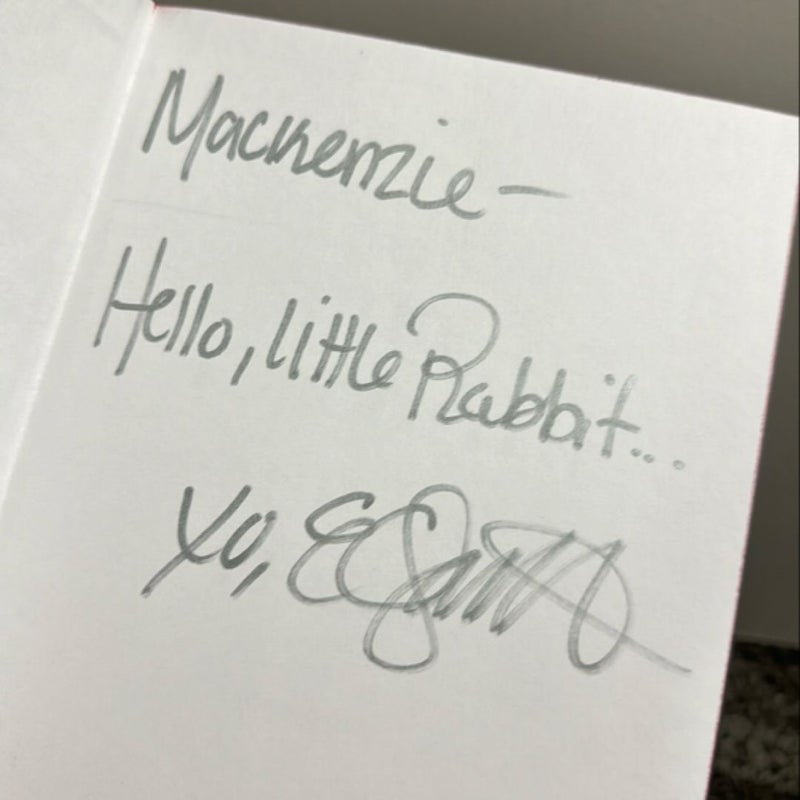 Mackenzie —
Hello, little Rabbit...
xo,